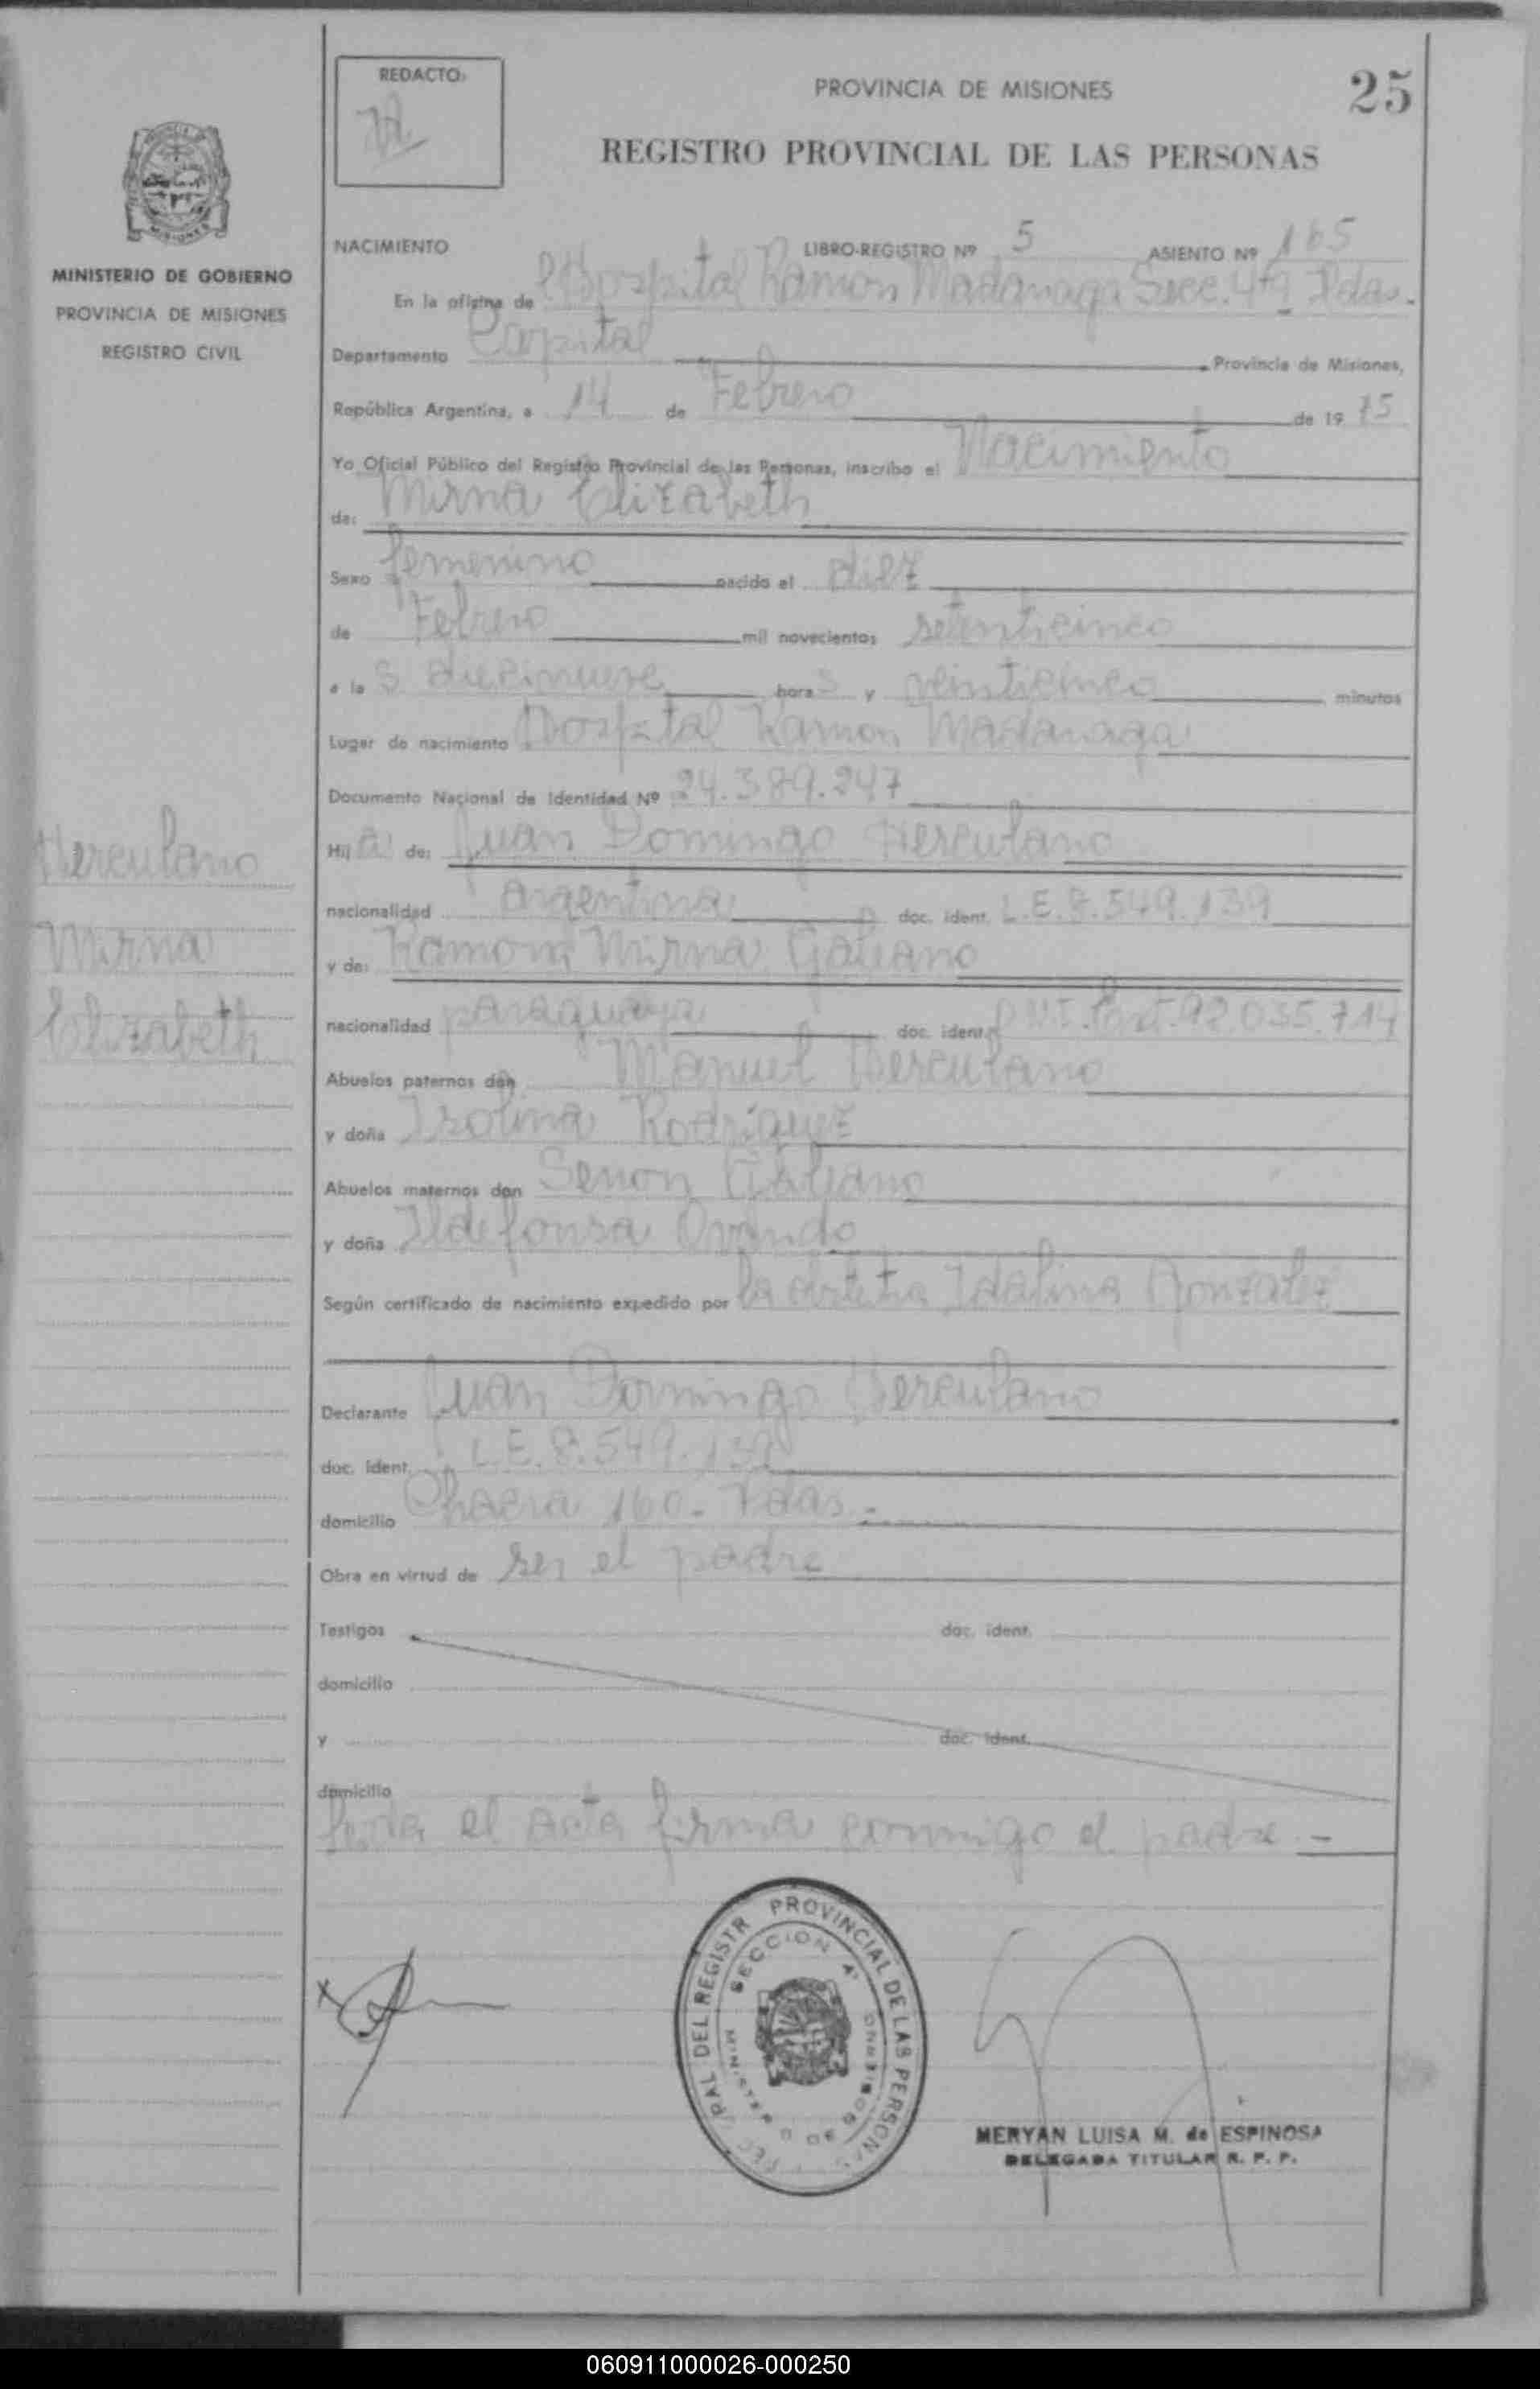 REDACTO:
PROVINCIA DE MISIONES
25
REGISTRO PROVINCIAL DE LAS PERSONAS
MISIONES
MINISTERIO DE GOBIERNO
PROVINCIA DE MISIONES
REGISTRO CIVIL
NACIMIENTO LIBRO-REGISTRO Nº 5 ASIENTO Nº 165
En la oficina de Hospital Ramon Madariaga Secc. 4ta Pdas.
Departamento Capital Provincia de Misiones,
República Argentina, a 14 de Febrero de 19 75
Yo Oficial Público del Registro Provincial de las Personas, inscribo el Nacimiento
de: Mirna Elizabeth
Sexo femenino nacido el diez
de Febrero mil novecientos setenticinco
a la s diecinueve hora s y veinticinco minutos
Lugar de nacimiento Hospital Ramon Madariaga
Documento Nacional de Identidad Nº 24.389.247
Hij a de: Juan Domingo Herculano
nacionalidad argentina doc. ident. L.E. 8.549.139
y de: Ramona Mirna Galeano
nacionalidad paraguaya doc. ident. D.N.I. Ext. 92.035.714
Abuelos paternos don Manuel Herculano
y doña Isolina Rodríguez
Abuelos maternos don Senon Galeano
y doña Ildefonsa Ovando
Según certificado de nacimiento expedido por la obstetra Idalina Gonzalez
Declarante Juan Domingo Herculano
doc. ident. L.E. 8.549.139
domicilio Chacra 160- Pdas.-
Obra en virtud de ser el padre
Testigos doc. ident.
domicilio
y doc. ident.
domicilio
Leida el acta firma conmigo el padre.-
Herculano
Mirna
Elizabeth
DEL REGISTR PROVINCIAL DE LAS PERSONAS
SECCION 4ª
MINISTERIO DE GOBIERNO
MERYAN LUISA M. de ESPINOSA
DELEGADA TITULAR R. P. P.
060911000026-000250